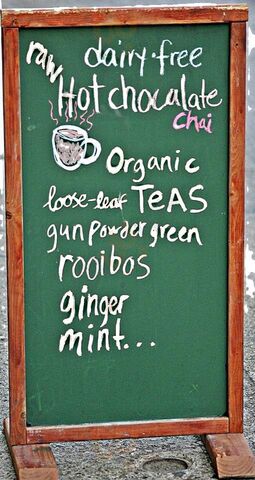 dairy·free
raw
Hot chocalate
Chai
Organic
loose-leaf TEAS
gunpowder green
rooibos
ginger
mint...